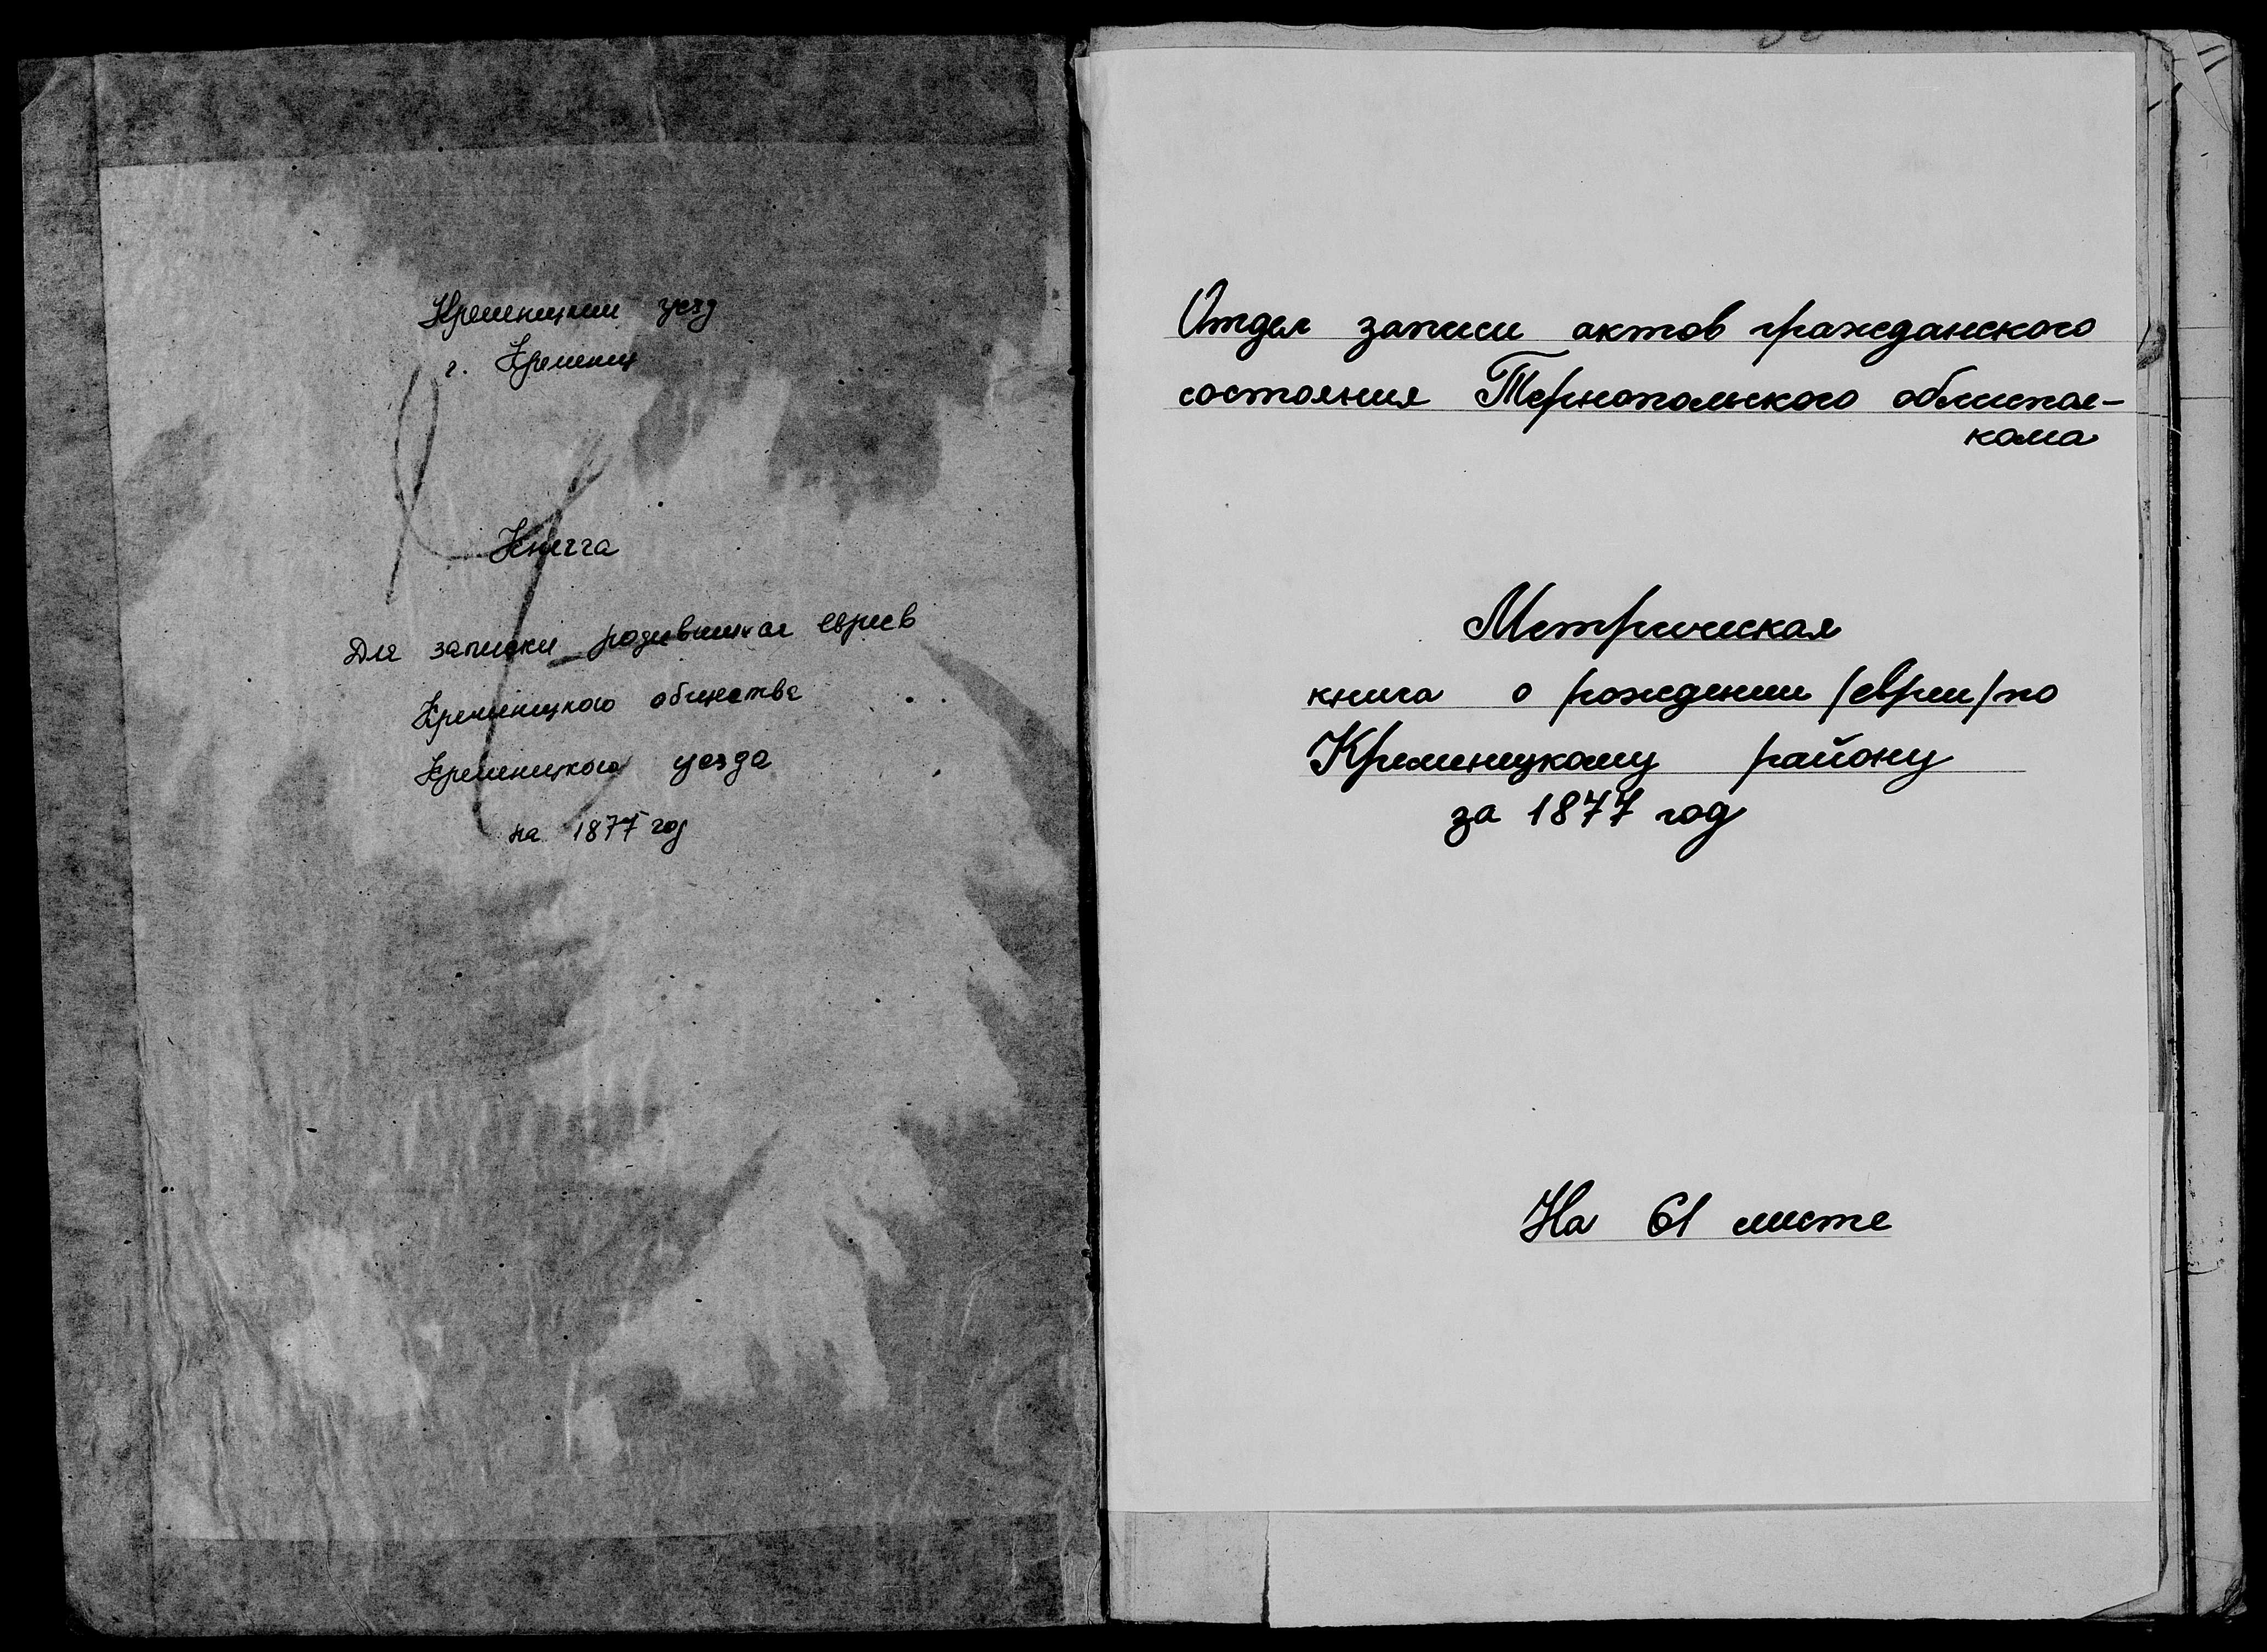 Кременецкий уезд
г. Кременец
Книга
Для записки родившихся евреев
Кременецкого общества
Кременецкого уезда
на 1877 год
Отдел записи актов гражданского
состояния Тернопольского облиспол-
кома
Метрическая
книга о рождении /евреи/ по
Кременецкому району
за 1877 год
На 61 листе